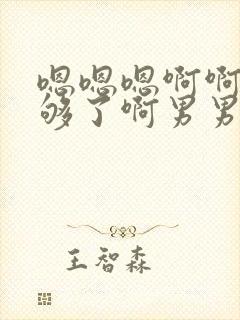 嗯嗯嗯啊啊
够了啊男男
王智森